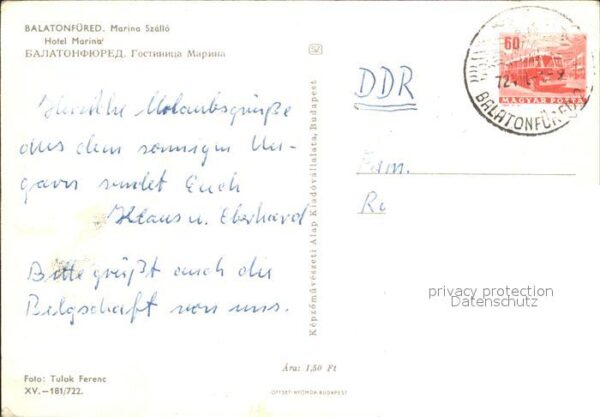 BALATONFÜRED. Marina Szálló
'Hotel Marina'
БАЛАТОНФЮРЕД. Гостиница Марина
Herzliche Urlaubsgrüße
aus dem sonnigen Un-
garn sendet Euch
Klaus u. Eberhard
Bitte grüßt auch die
Belgschaft von uns.
Foto: Tulok Ferenc
XV.—181/722.
Képzőművészeti Alap Kiadóvállalata, Budapest
Ára: 1,50 Ft
OFFSET-NYOMDA BUDAPEST
DDR
60
MAGYAR POSTA
BALATONFÜRED
Fam.
privacy protection
Datenschutz